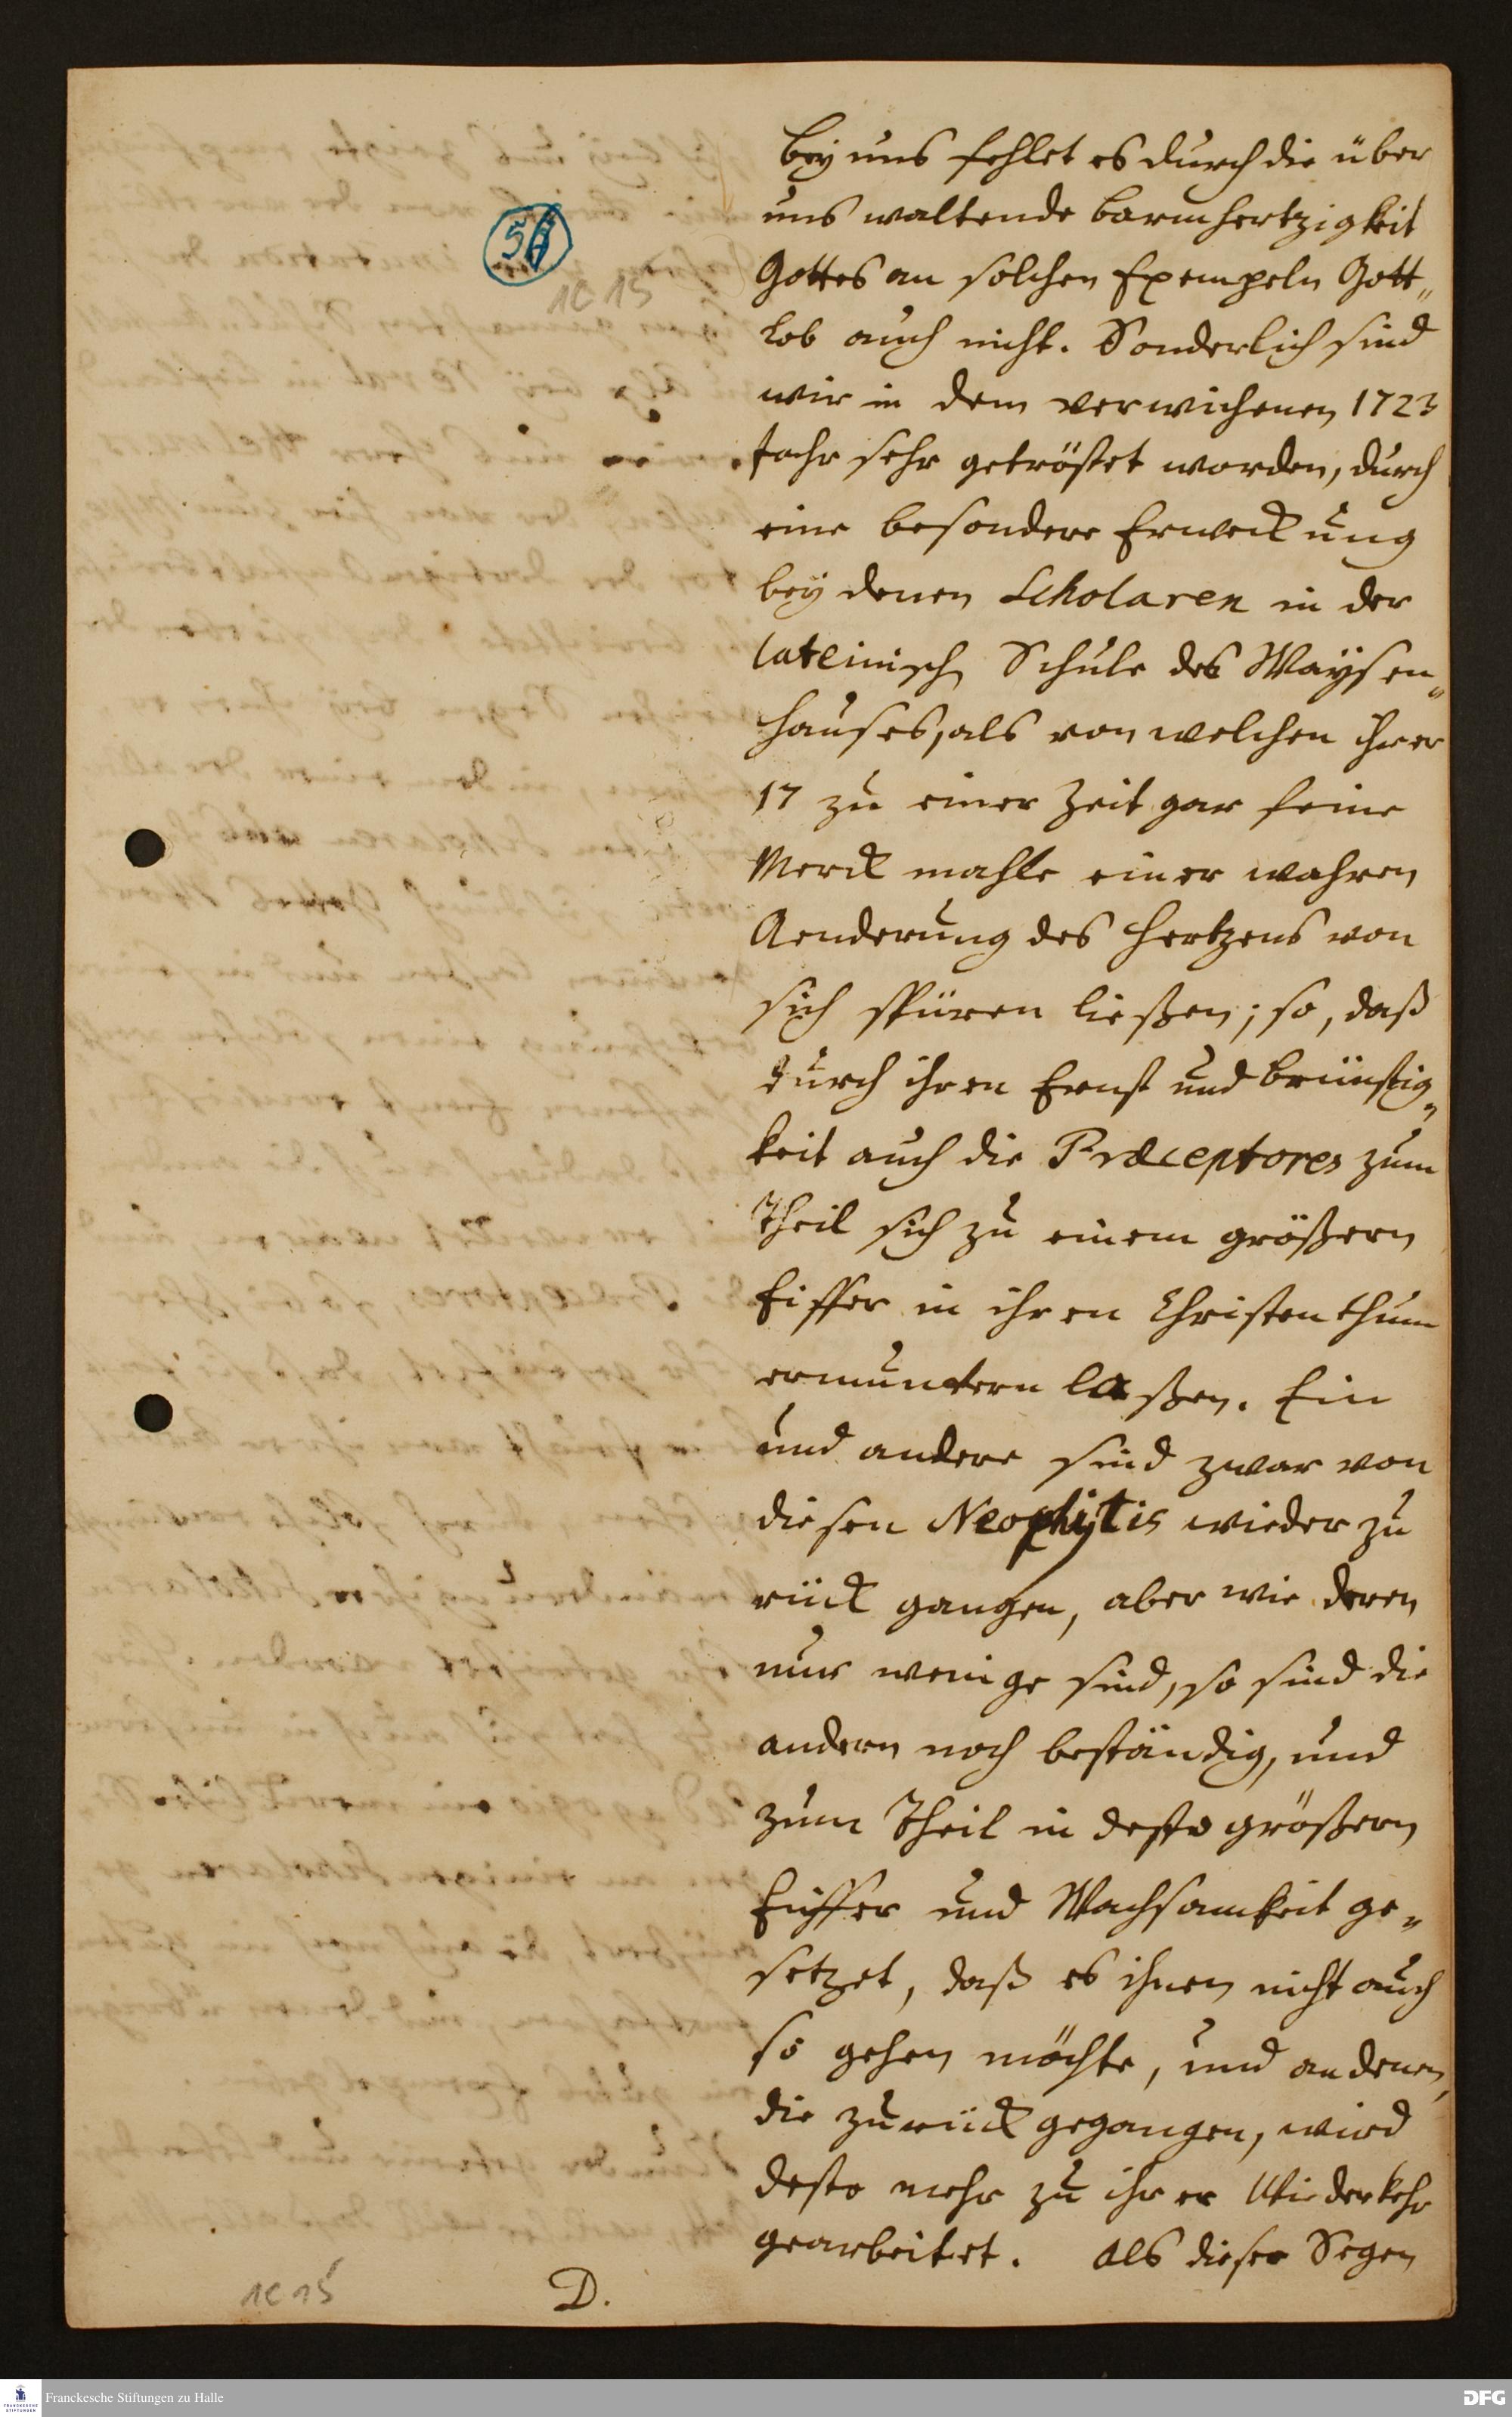 bey uns fehlet es durch die über
uns waltende barmhertzigkeit
Gottes an solchen Exempeln Gott„
lob auch nicht. Sonderlich sind
wir in dem verwichenen 1723
Jahr sehr getröstet worden, durch
eine besondere Erweckung
bey denen Scholaren in der
lateinisch Schule des Waysen„
hauses, als von welchen ihrer
17 zu einer Zeit gar feine
Merckmahle einer wahren
Aenderung des Hertzens von
sich spüren ließen; so, daß
durch ihren Ernst und brünstig„
keit auch die Præceptores zum
Theil sich zu einem größern
Eiffer in ihren Christenthum
ermuntern laßen. Ein
und andere sind zwar von
diesen Neophytis wieder zu
rück gangen, aber wie deren
nur wenige sind, so sind die
andern noch beständig, und
zum Theil in desto größern
Eiffer und Wachsamkeit ge„
setzet, daß es ihnen nicht auch
so gehen möchte, und an denen,
die zurück gegangen, wird
desto mehr zu ihrer Wiederkehr
gearbeitet. Als dieser Segen
1C 15
1C 15
D.
Franckesche Stiftungen zu Halle
DFG